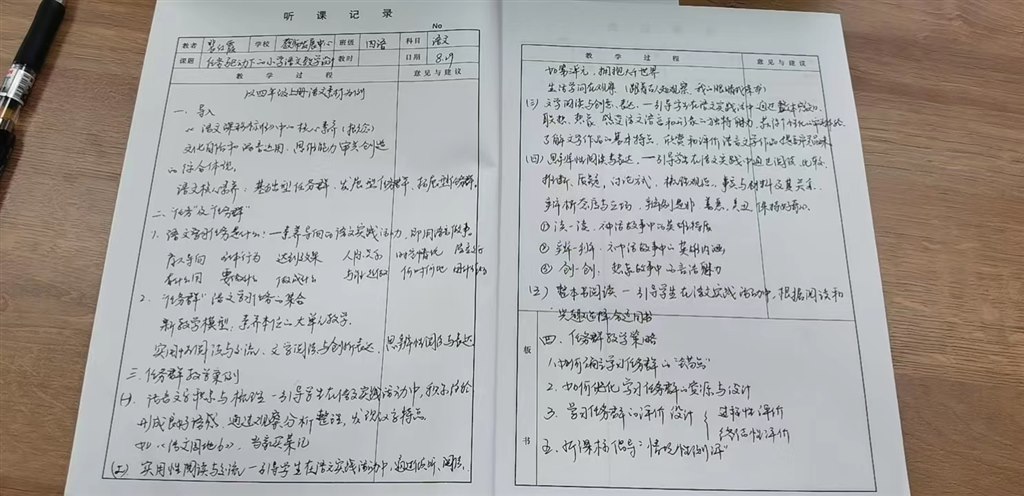 听课记录
No
教者 学校 教师发展中心 班级 四语 科目 语文
课题 任务驱动下的小学语文教学设计 教时 日期 8.29
教学过程 意见与建议
以四年级上册语文教材为例
一、导入
语文课程标准的中心核心素养(概念)
文化自信和语言运用、思维能力审美创造
的综合体现。
语文核心素养:基础型任务群、发展型任务群、拓展型任务群。
二、“任务”及“任务群”
1. 语文学习任务是什么:一素养导向的语文实践活动,即用语言做事。
育人导向 达到效果 人际关系
有什么用 要做什么 做成什么 何时何地
2. “任务群”语文学习任务的集合
新教学模型,素养本位的大单元教学。
实用性阅读与交流、文学阅读与创意表达、思辨性阅读与表达
三、任务群教学案例
(一)、语言文字积累与梳理一引导学生在语文实践活动中,积累语言
形成良好语感,通过观察分析整理,发现汉字特点。
如:《语文园地6》,
(二)实用性阅读与交流一引导学生在语文实践活动中,通过倾听、阅读、
教学过程 意见与建议
单元,拥抱大千世界
生活学问在观察
(三)文学阅读与创意表达,一引导学生在语文实践活动中通过整体感知、
联想、想象,感受语文语言和形象的独特魅力,获得个性化的审美体验
了解文学作品的基本特点,欣赏和评价语言文字作品提高审美品味
(四)思辨性阅读与表达,一引导学生在语文实践中通过阅读、比较、
推断、质疑、讨论方式,梳理观点、事实与材料及其关系.
辨析态度与立场,辨别是非、善恶、美丑 保持好奇心
① 谈一谈:神话故事中的英雄特质
② 辨一辨:神话故事中的英雄内涵
③ 创一创:想象故事中的言语魅力
(五)整本书阅读一引导学生在语文实践活动中,根据阅读和
兴趣选择合适图书
板书
四、任务群教学策略
1. 如何确定学习任务群的“落点”
2. 如何优化学习任务群的资源与设计
3. 学习任务群的评价设计 过程性评价
终结性评价
五、新课标倡导“情境性测评”